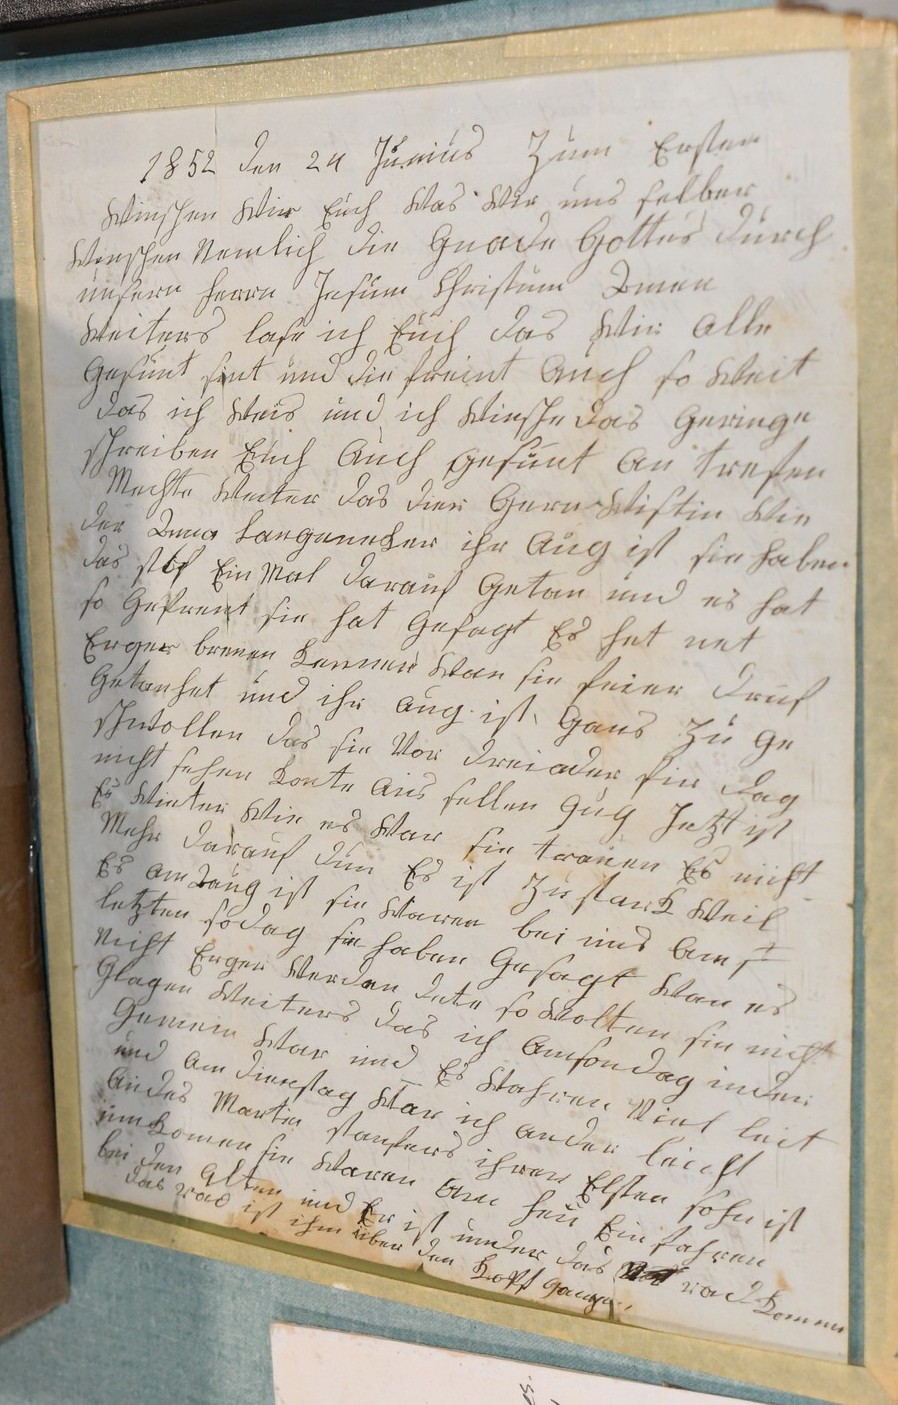 1852 den 24 Junius Zum Ersten
Winschen Wir Euch Was Wir uns selber
Winschen Nemlich die Gnade Gottes durch
unsern herrn Jesum Christum Amen
Weiters lase ich Euch das Wir Alle
Gesunt sint und die freint Auch so Weit
das ich Weis und ich Winsche das Geringe
schreiben Euch Auch gesunt An trefen
Mechte Weiter das dier Gern Wistin Wie
der Anna Langenecker ihr Aug ist sie haben
das stof Ein Mal darauf Getan und es hat
so Gefrent sie hat Gesagt Es het net
Erger brenen kennen Wan sie feier druf
Getan het und ihr Aug ist Gans Zu Ge
schwollen das sie Vor drei oder fir dag
nicht sehen konte Aus sellen Aug Jetzt ist
Es Wieter Wie es War sie trauen Es nicht
Mehr darauf dun Es ist Zu stark Weil
Es am Aug ist sie Waren bei uns Am
letzten sodag sie haben Gesagt Wan es
nicht Erger Werden dete so Wolten sie nicht
Glagen Weiters das ich Am sondag in der
Gemein War und Es Wahren Viel leit
und am dienstag War ich an der leicht
An des Martin staufers ihren Elsten sohn ist
um komen sie Waren Am heu Ein fahren
bei den Alten und Er ist under das rad komen
das rad ist ihm über den Kopf gangen